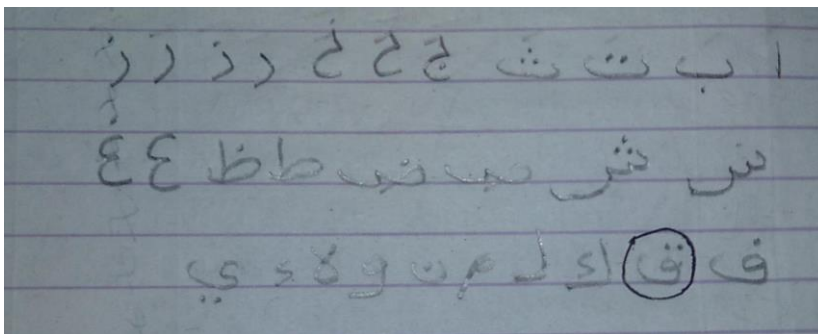 ا ب ت ث ج ح خ د ذ ر ز
س ش ص ض ط ظ ع غ
ف ق ك ل م ن و لا ء ي